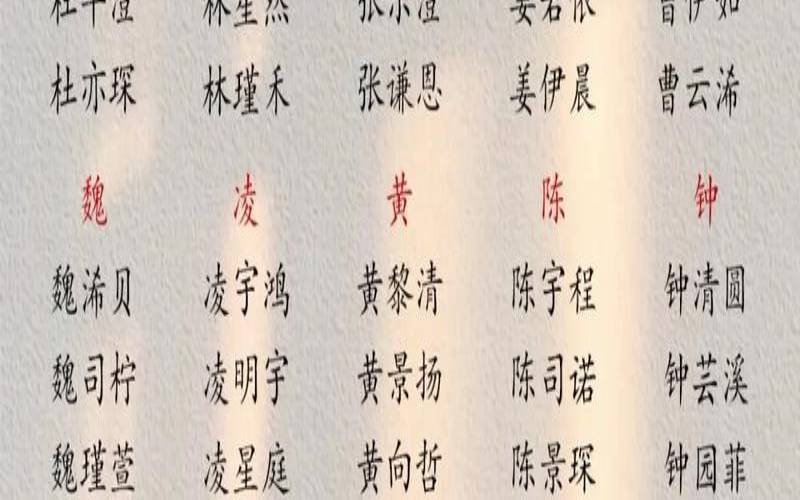 杜亦琛 林瑾禾 张谦恩 姜伊晨 曹云浠
魏 凌 黄 陈 钟
魏浠贝 凌宇鸿 黄黎清 陈宇程 钟清圆
魏司柠 凌明宇 黄景扬 陈司诺 钟芸溪
魏瑾萱 凌星庭 黄向哲 陈景琛 钟园菲